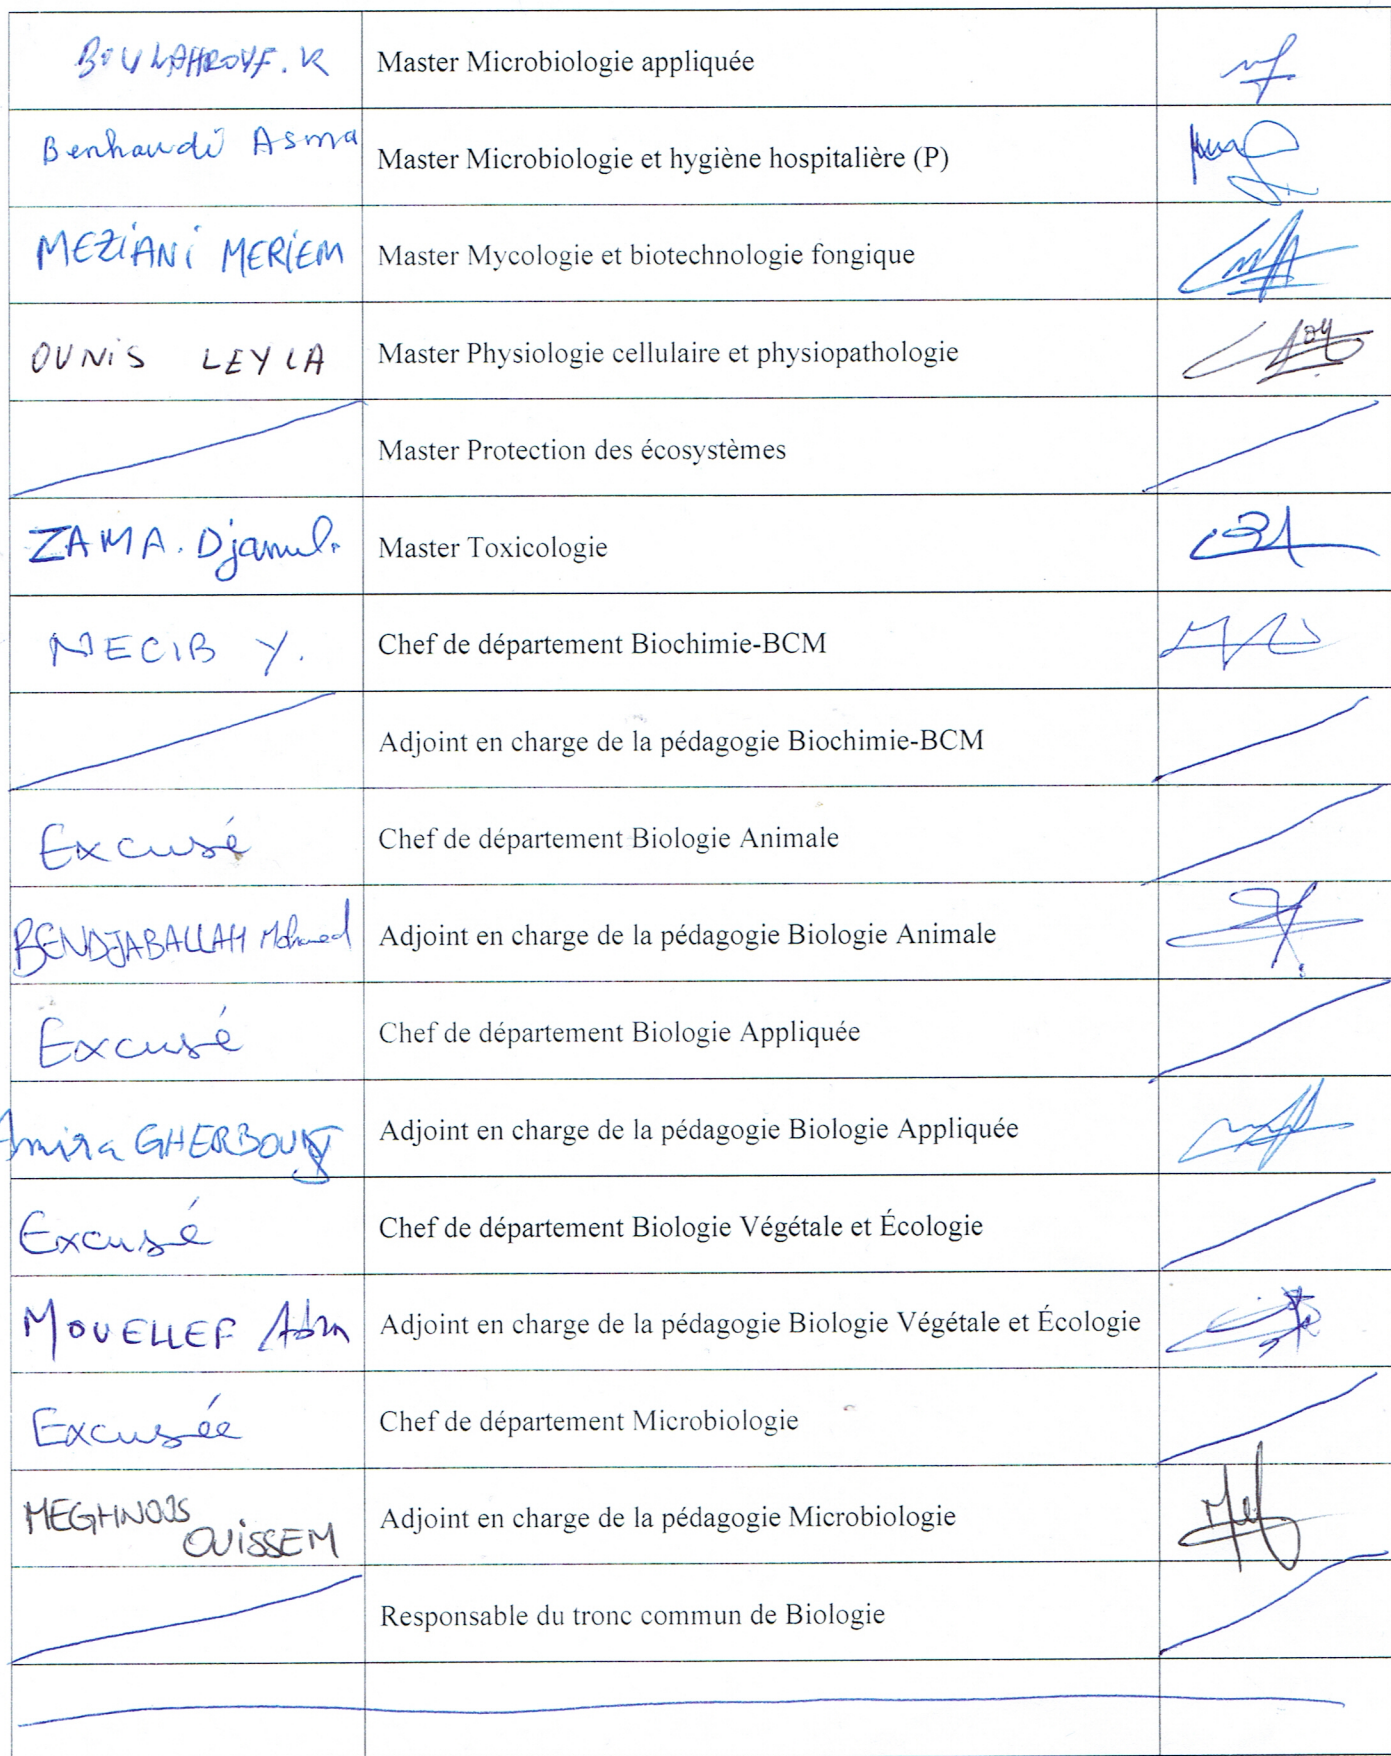 BOULAHROUF. K
Master Microbiologie appliquée
Benhaudi Asma
Master Microbiologie et hygiène hospitalière (P)
MEZiANi MERiEM
Master Mycologie et biotechnologie fongique
OUNiS LEYLA
Master Physiologie cellulaire et physiopathologie
Master Protection des écosystèmes
ZAMA. Djamel.
Master Toxicologie
NECIB Y.
Chef de département Biochimie-BCM
Adjoint en charge de la pédagogie Biochimie-BCM
Excusé
Chef de département Biologie Animale
BENDJABALLAH Mohamed
Adjoint en charge de la pédagogie Biologie Animale
Excusé
Chef de département Biologie Appliquée
Amira GHERBOUDJ
Adjoint en charge de la pédagogie Biologie Appliquée
Excusé
Chef de département Biologie Végétale et Écologie
MOUELLEF
Adjoint en charge de la pédagogie Biologie Végétale et Écologie
Excusée
Chef de département Microbiologie
MEGHNOUS
OUiSSEM
Adjoint en charge de la pédagogie Microbiologie
Responsable du tronc commun de Biologie